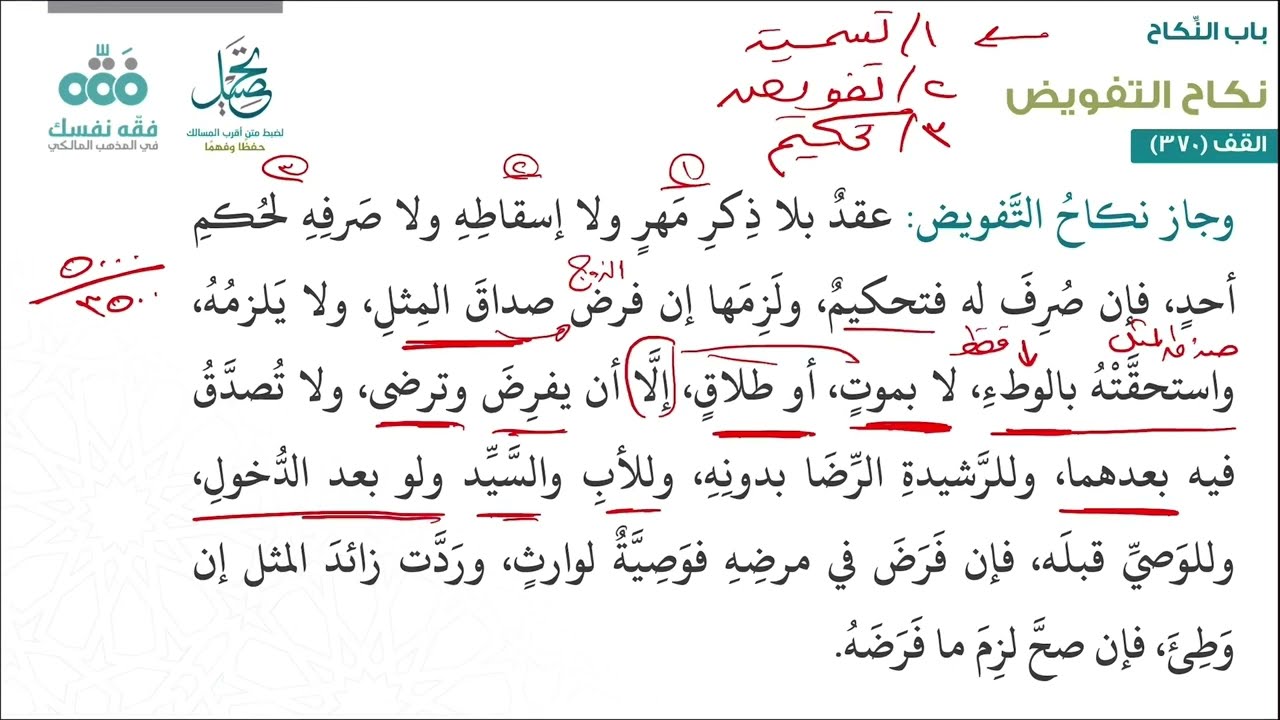 باب النِّكاح
نكاح التفويض
القف (٣٧٠)
١/ تسمية
٢/ تفويض
٣/ تحكيم
تحصيل
لضبط متن أقرب المسالك
حفظًا وفهمًا
فقّه نفسك
في المذهب المالكي
١ ٢ ٣
وجاز نكاحُ التَّفويض: عقدٌ بلا ذِكرِ مَهرٍ ولا إسقاطِهِ ولا صَرفِهِ لحُكمِ
الزوج
٥٠٠٠
٣٥٠٠
أحدٍ، فإن صُرِفَ له فتحكيمٌ، ولَزِمَها إن فرضَ صداقَ المِثلِ، ولا يَلزمُهُ،
صداق المثل
فقط
واستحقَّتْهُ بالوطءِ، لا بموتٍ، أو طلاقٍ، إلَّا أن يفرِضَ وترضى، ولا تُصدَّقُ
فيه بعدهما، وللرَّشيدةِ الرِّضَا بدونِهِ، وللأبِ والسَّيِّد ولو بعد الدُّخولِ،
وللوَصيِّ قبلَه، فإن فَرَضَ في مرضِهِ فوَصِيَّةٌ لوارثٍ، وردَّت زائدَ المثل إن
وَطِئَ، فإن صحَّ لزِمَ ما فَرَضَهُ.